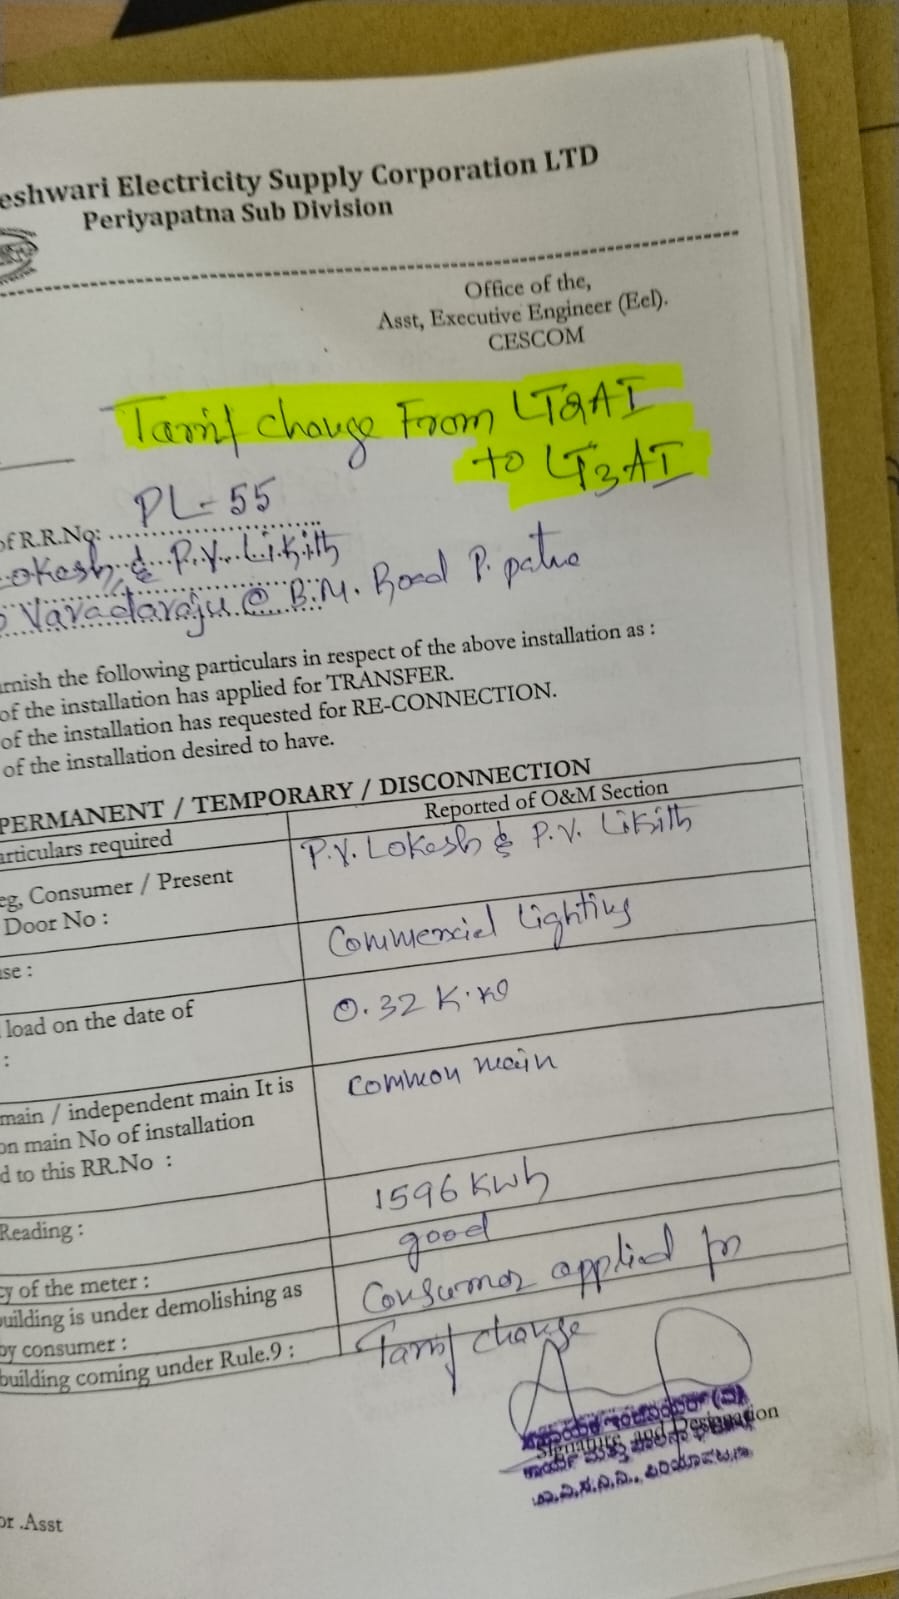 eshwari Electricity Supply Corporation LTD
Periyapatna Sub Division
Office of the,
Asst, Executive Engineer (Eel).
CESCOM
Tarrif change From LT2AI
to LT3AI
of R.R.No: PL-55
okesh & P.V. Likith
Varadaraju @ B.M. Road P. patna
urnish the following particulars in respect of the above installation as :
of the installation has applied for TRANSFER.
of the installation has requested for RE-CONNECTION.
of the installation desired to have.
PERMANENT / TEMPORARY / DISCONNECTION
articulars required
Reported of O&M Section
eg, Consumer / Present
Door No :
P.V. Lokesh & P.V. Likith
use :
Commercial Lighting
load on the date of
:
0.32 K.
main / independent main It is
on main No of installation
d to this RR.No :
Common main
Reading :
1596 Kwh
cy of the meter :
good
building is under demolishing as
by consumer :
building coming under Rule.9 :
Consumer applied for
Tarrif change
Signature and Designation
or .Asst